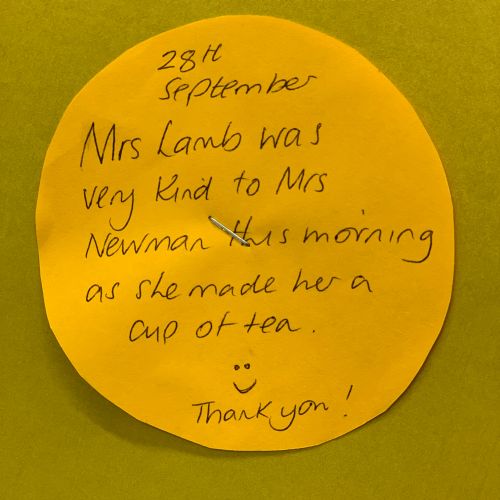 28th
September
Mrs Lamb was
very kind to Mrs
Newman this morning
as she made her a
cup of tea.
Thank you!